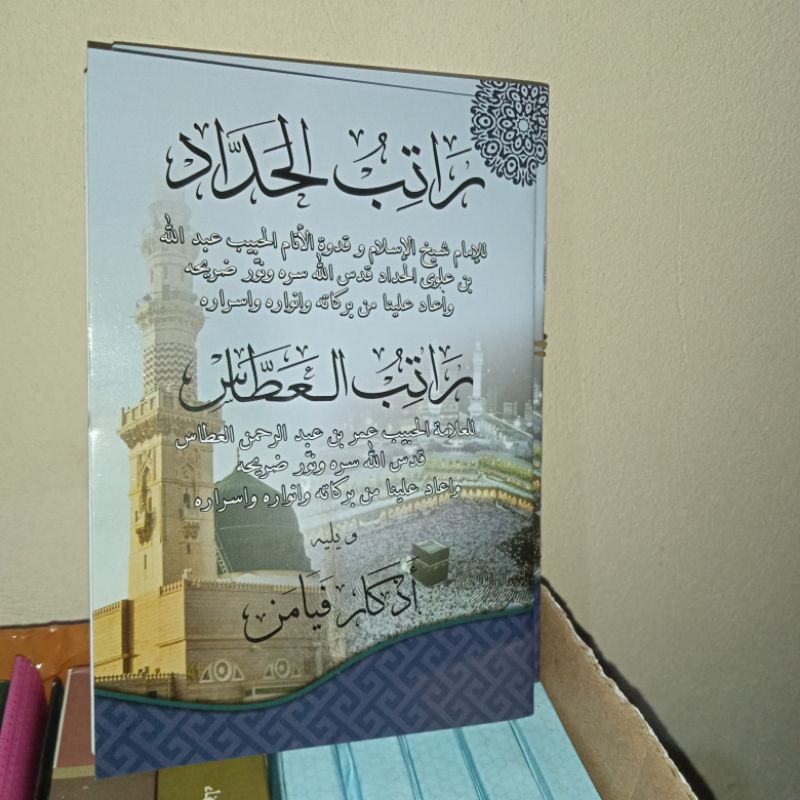 رَاتِبُ الحَدَّاد
للإمام شيخ الإسلام و قدوة الأنام الحبيب عبد الله
بن علوى الحداد قدس الله سره ونوّر ضريحه
واعاد علينا من بركاته وانواره واسراره
رَاتِبُ العَطَّاس
للعلامة الحبيب عمر بن عبد الرحمن العطاس
قدس الله سره ونوّر ضريحه
واعاد علينا من بركاته وانواره واسراره
ويليه
أذكار فَيَامَن